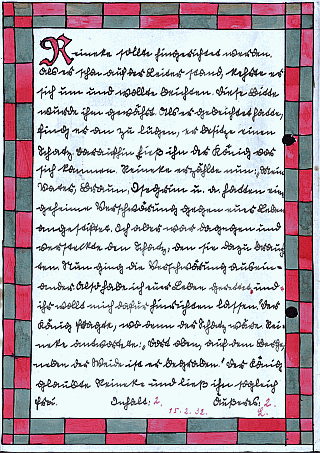 Reineke sollte hingerichtet werden.
Als er schon auf der Leiter stand, kehrte er
sich um und wollte beichten. Diese Bitte
wurde ihm gewährt. Als er gebeichtet hatte,
fing er an zu lügen, er besitze einen
Schatz. Daraufhin ließ ihn der König vor
sich kommen. Reineke erzählte nun: Mein
Vater, Braun, Isegrim u. a. hatten eine
geheime Verschwörung gegen euer Leben
angestiftet. Ich aber war dagegen und
versteckte den Schatz, den sie dazu brauch
ten. Nun ging die Verschwörung ausein-
ander. Also habe ich euer Leben gerettet, und
ihr wollt mich dafür hinrichten lassen. Der
König fragte, wo denn der Schatz wäre. Rei-
neke antwortete: „Dort oben, auf dem Berge
neben der Weide ist er begraben." Der König
glaubte Reineke und ließ ihn sogleich
frei. Inhalt: 2. Äußeres: 2.
15. 2. 32. L.